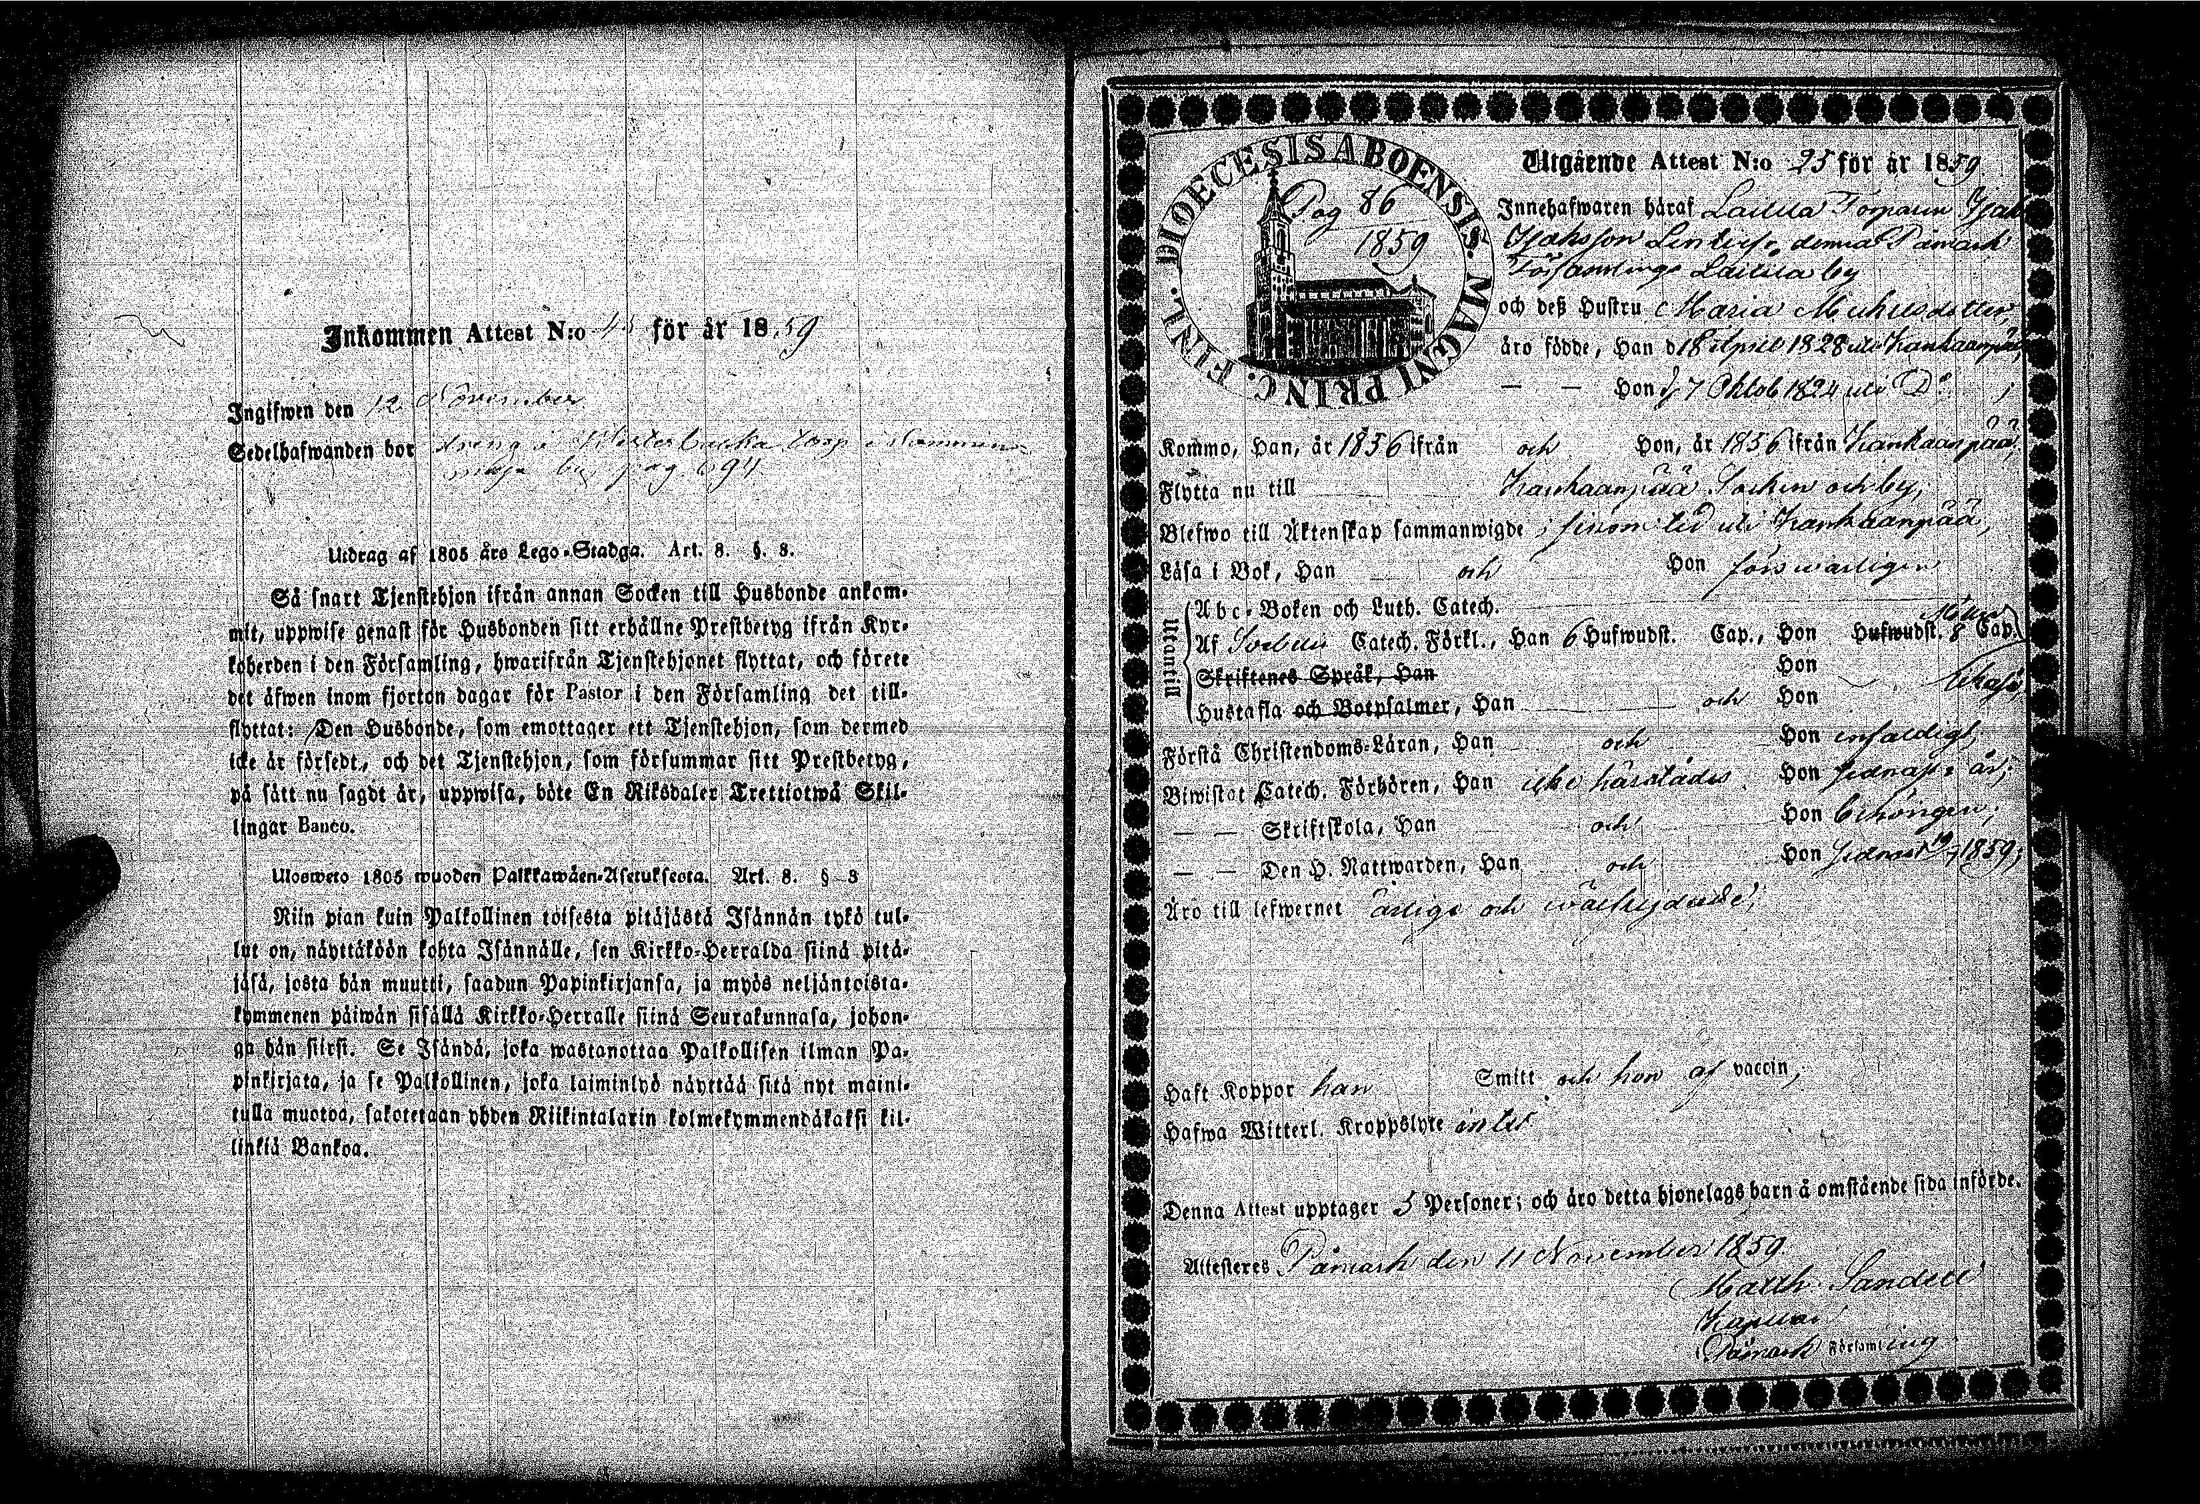 Inkommen Attest N:o för år 1859
Ingifwen den 12 November
Sedelhafwanden bor dräng i torp
by pag 694
Utdrag af 1805 års Lego-Stadga. Art. 8. §. 3.
Så snart Tjenstehjon ifrån annan Socken till Husbonde ankom-
mit, uppwise genast för Husbonden sitt erhållne Prestbetyg ifrån Kyr-
koherden i den Församling, hwarifrån Tjenstehjonet flyttat, och förete
det äfwen inom fjorton dagar för Pastor i den Församling det till-
flyttat: Den Husbonde, som emottager ett Tjenstehjon, som dermed
icke är försedt, och det Tjenstehjon, som försummar sitt Prestbetyg,
på sätt nu sagdt är, uppwisa, böte En Riksdaler Trettiotwå Skil-
lingar Banco.
Ulosweto 1805 wuoden Palkkawäen-Asetuksesta. Art. 8. § 3
Niin pian kuin Palkollinen toisesta pitäjästä Isännän tykö tul-
lut on, näyttäköön kohta Isännälle, sen Kirkko-Herralda siinä pitä-
jäsä, josta hän muutti, saadun Papinkirjansa, ja myös neljäntoista-
kymmenen päiwän sisällä Kirkko-Herralle siinä Seurakunnasa, johon-
ga hän siirsi. Se Isändä, joka wastanottaa Palkollisen ilman Pa-
pinkirjata, ja se Palkollinen, joka laiminlyö näyttää sitä nyt maini-
tulla muotoa, sakotetaan yhden Riikintalarin kolmekymmendäkaksi kil-
linkiä Bankoa.
DIOECESIS ABOENSIS. MAGNI PRINC. FINL.
Pag 86
1859
Utgående Attest N:o 25 för år 1859
Innehafwaren häraf Laitila Torparen
denna Påmark
Församlings Laitila by
och deß Hustru Maria Michelsdotter,
äro födde, Han d 18 April 1828 uti Kankaanpää,
— — Hon d 7 Oktob 1824 uti D:o ;
Kommo, Han, år 1856 ifrån och Hon, år 1856 ifrån Kankaanpää,
Flytta nu till Kankaanpää Socken och by;
Blefwo till Äktenskap sammanwigde i sinom tid uti Kankaanpää,
Läsa i Bok, Han och Hon förswarligen
Utantill
Abc-Boken och Luth. Catech.
Af Catech. Förkl., Han 6 Hufwudst. Cap., Hon Hufwudst. 8 Cap.
Skriftenes Språk, Han Hon
Hustafla och Botpsalmer, Han och Hon
Förstå Christendoms-Läran, Han och Hon enfaldigt,
Biwistat Catech. Förhören, Han icke härstädes Hon sednast i år;
— — Skriftskola, Han och Hon behörigen;
— — Den H. Nattwarden, Han och Hon sednast 1859;
Äro till lefwernet ärlige och
Haft Koppor han Smitt och hon af vaccin,
Hafwa Witterl. Kroppslyte intet
Denna Attest upptager 5 Personer; och äro detta hjonelags barn å omstående sida införde.
Attesteres Påmark den 11 November 1859
Matth. Sandell
Kapellan
i Påmark Församling